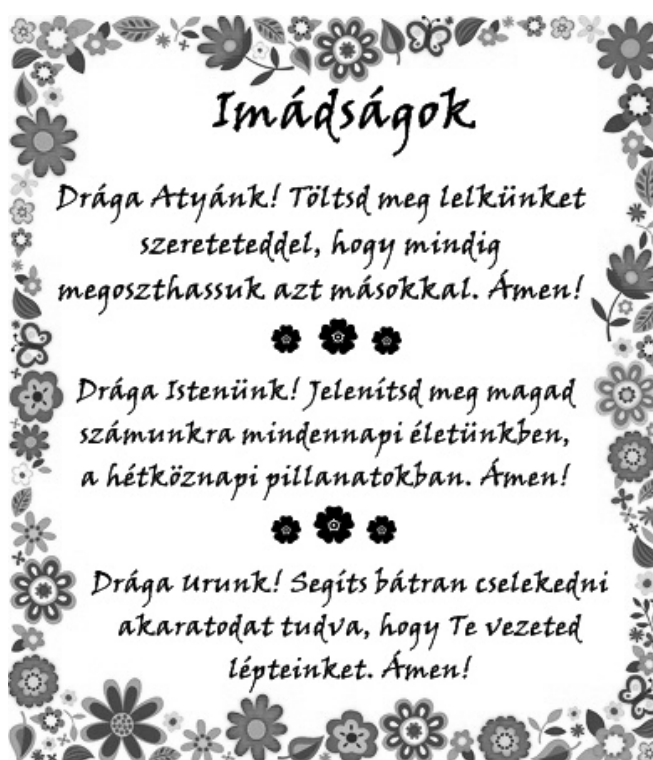 Imádságok
Drága Atyánk! Töltsd meg lelkünket
szereteteddel, hogy mindig
megoszthassuk azt másokkal. Ámen!
Drága Istenünk! Jelenítsd meg magad
számunkra mindennapi életünkben,
a hétköznapi pillanatokban. Ámen!
Drága Urunk! Segíts bátran cselekedni
akaratodat tudva, hogy Te vezeted
lépteinket. Ámen!